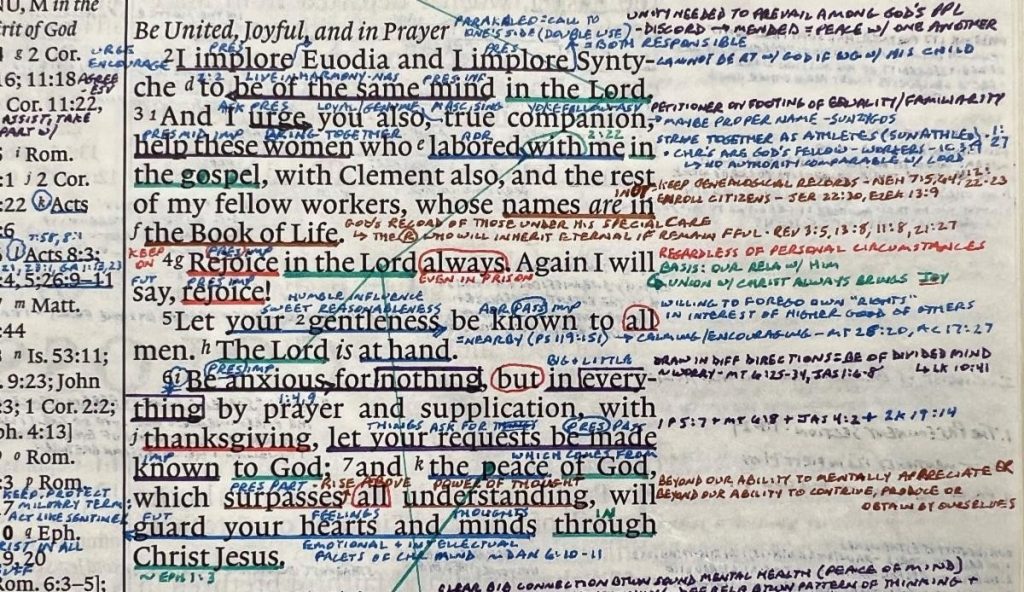 NU, M in the
rit of God
g 2 Cor.
16; 11:18
Cor. 11:22,
i Rom.
:1 j 2 Cor.
:22 k Acts
:6
l Acts 8:3;
:4, 5; 26:9–11
m Matt.
:44
n Is. 53:11;
. 9:23; John
:3; 1 Cor. 2:2;
ph. 4:13]
o Rom.
:3 p Rom.
q Eph.
9, 20
Rom. 6:3–5];
URGE
ENCOURAGE
AGREE
ASSIST, TAKE
PART W/
KEEP
ON
FUT
KEEP, PROTECT
MILITARY TERM:
ACT LIKE SENTINEL
Be United, Joyful, and in Prayer
PRES PRES
2 I implore Euodia and I implore Synty-
2:2 LIVE IN HARMONY-NAS PRES INF
che d to be of the same mind in the Lord.
ASK PRES LOYAL/GENUINE MASC, SING YOKEFELLOW
3 1 And I urge you also, true companion,
PRES MID IMP BRING TOGETHER AOR 2:22
help these women who e labored with me in
the gospel, with Clement also, and the rest
of my fellow workers, whose names are in
f the Book of Life.
GOD'S RECORD OF THOSE UNDER HIS SPECIAL CARE
THE WHO WILL INHERIT ETERNAL IF REMAIN FFUL · REV 3:5, 13:8, 11:8, 21:27
PRES IMP
4 g Rejoice in the Lord always. Again I will
PRES IMP EVEN IN PRISON
say, rejoice!
HUMBLE INFLUENCE
SWEET REASONABLENESS AOR PASS IMP
5 Let your 2 gentleness be known to all
men. h The Lord is at hand.
= NEARBY (PS 119:151) → CALMING/ENCOURAGING - MT 28:20, AC 17:27
PRES IMP BIG + LITTLE
6 i Be anxious for nothing, but in every-
1:4, 9
thing by prayer and supplication, with
THINGS ASK FOR PRES PASS
j thanksgiving, let your requests be made
IMP WHICH COMES FROM
known to God; 7 and k the peace of God,
PRES PART - RISE ABOVE POWER OF THOUGHT
which surpasses all understanding, will
FUT FEELINGS THOUGHTS IN
guard your hearts and minds through
Christ Jesus.
EMOTIONAL + INTELLECTUAL
~ EPH 1:3
PARAKALEO = CALL TO
ONE'S SIDE (DOUBLE USE)
= BOTH RESPONSIBLE
UNITY NEEDED TO PREVAIL AMONG GOD'S PPL
- DISCORD → MENDED = PEACE W/ ONE ANOTHER
CANNOT BE RT W/ GOD IF WG W/ HIS CHILD
PETITIONER ON FOOTING OF EQUALITY/FAMILIARITY
MAYBE PROPER NAME - SUNZUGOS
STRIVE TOGETHER AS ATHLETES (SUNATHLEO) · 1:27
· CHR'S ARE GOD'S FELLOW-WORKERS - 1C 3:9
NO AUTHORITY COMPARABLE W/ LORD
KEEP GENEALOGICAL RECORDS - NEH 7:5, 64, 12:22-23
ENROLL CITIZENS - JER 22:30, EZEK 13:9
REGARDLESS OF PERSONAL CIRCUMSTANCES
BASIS: OUR RELA W/ HIM
UNION W/ CHRIST ALWAYS BRINGS JOY
WILLING TO FOREGO OWN "RIGHTS"
IN INTEREST OF HIGHER GOOD OF OTHERS
DRAW IN DIFF DIRECTIONS = BE OF DIVIDED MIND
~ WORRY - MT 6:25-34, JAS 1:6-8
LK 10:41
1 P 5:7 + MT 6:8 + JAS 4:2 + 2K 19:14
BEYOND OUR ABILITY TO MENTALLY APPRECIATE OR
BEYOND OUR ABILITY TO CONTRIVE, PRODUCE OR
OBTAIN BY OURSELVES
CLEAR BIB CONNECTION BTWN SOUND MENTAL HEALTH (PEACE OF MIND)